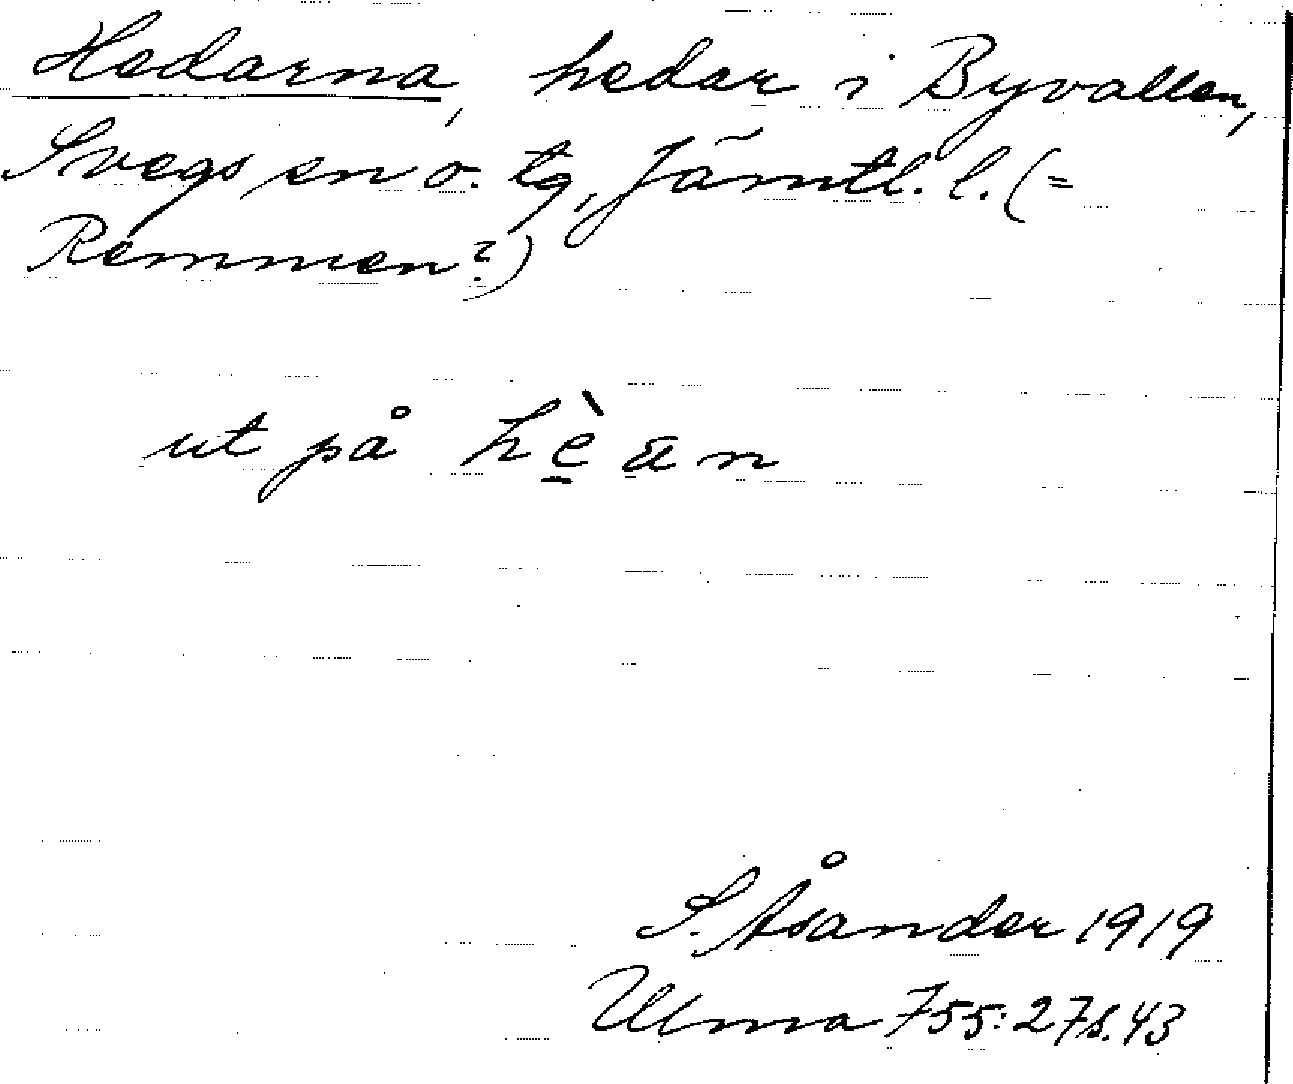 Hedarna, hedar i Byvallen,
Svegs sn o. tg, Jämtl. l. (=
Remmen?)
ut på hè̱an
S. Åsander 1919
Ulma 755:27 s. 43